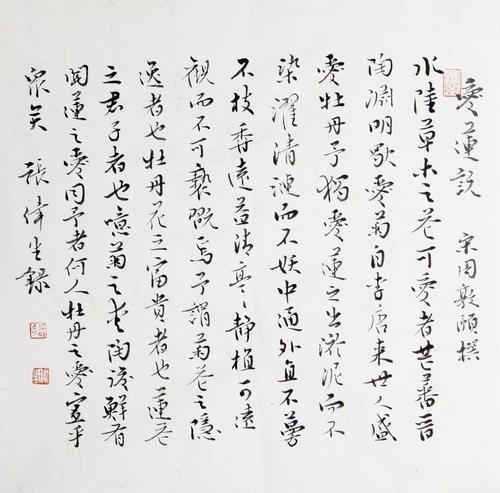 愛蓮説 宋周敦頤撰
水陸草木之花可愛者甚蕃晋
陶淵明獨愛菊自李唐来世人盛
愛牡丹予獨愛蓮之出淤泥而不
染濯清漣而不妖中通外直不蔓
不枝香遠益清亭々静植可遠
觀而不可褻翫焉予謂菊花之隱
逸者也牡丹花之富貴者也蓮花
之君子者也噫菊之愛陶後鮮有
聞蓮之愛同予者何人牡丹之愛宜乎
衆矣 張偉生録